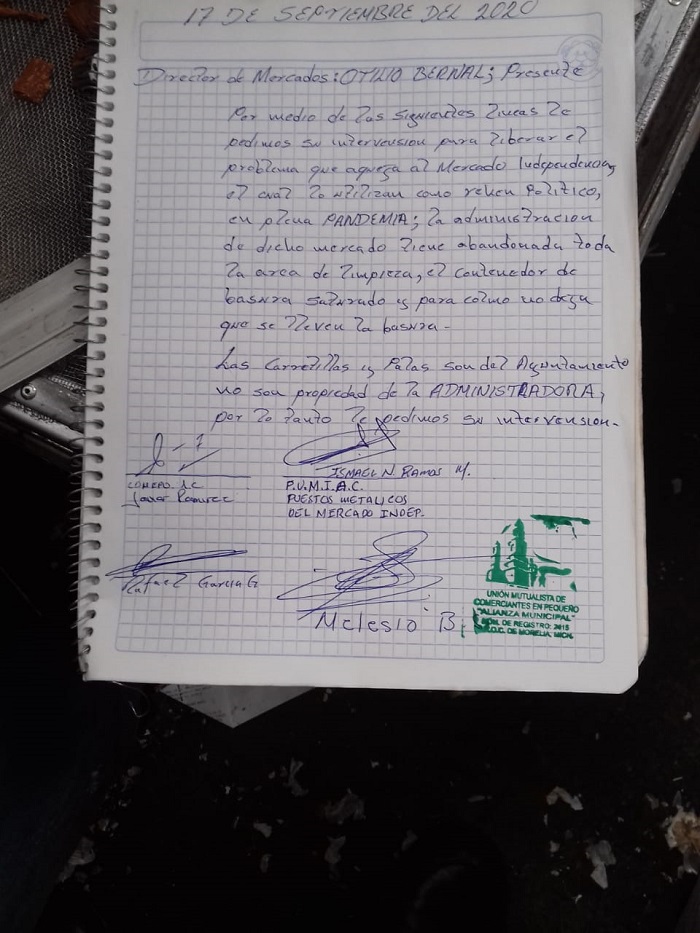 17 DE SEPTIEMBRE DEL 2020
Director de Mercados: OTILIO BERNAL; Presente
Por medio de las siguientes lineas le
pedimos su intervension para liberar el
problema que aqueja al Mercado Independencia,
el cual lo utilizan como rehen Politico,
en plena PANDEMIA; la administracion
de dicho mercado tiene abandonada toda
la area de limpieza, el contenedor de
basura saturado y para colmo no deja
que se lleven la basura-
Las Carretillas y Palas son del Ayuntamiento
no son propiedad de la ADMINISTRADORA,
por lo tanto le pedimos su intervension-
COMEPO. A.C
Javier Ramirez
ISMAEL N. RAMOS M.
P.U.M.I.A.C.
PUESTOS METALICOS
DEL MERCADO INDEP.
Rafael Garcia G
Melesio B.
UNIÓN MUTUALISTA DE
COMERCIANTES EN PEQUEÑO
"ALIANZA MUNICIPAL"
NÚM. DE REGISTRO: 2615
D.O.C. DE MORELIA, MICH.